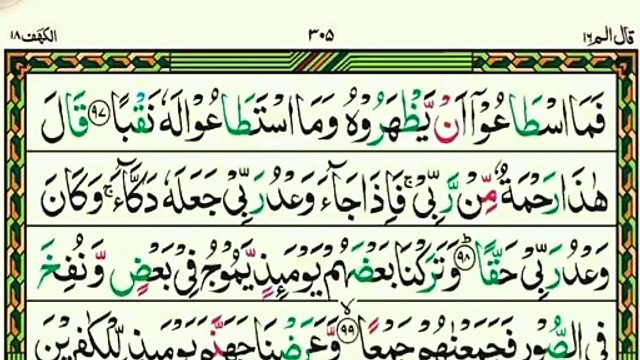 قال الم ١٦ ٣٠٥ الكهف ١٨
فَمَا اسْطَاعُوْۤا اَنْ يَّظْهَرُوْهُ وَمَا اسْتَطَاعُوْا لَهٗ نَقْبًا ﴿۹۷﴾ قَالَ
هٰذَا رَحْمَةٌ مِّنْ رَّبِّیْ ۚ فَاِذَا جَآءَ وَعْدُ رَبِّیْ جَعَلَهٗ دَكَّآءَ ۚ وَكَانَ
وَعْدُ رَبِّیْ حَقًّا ؕ﴿۹۸﴾ وَتَرَكْنَا بَعْضَهُمْ يَوْمَئِذٍ يَّمُوْجُ فِیْ بَعْضٍ وَّنُفِخَ
فِی الصُّوْرِ فَجَمَعْنٰهُمْ جَمْعًا ۙ﴿۹۹﴾ وَّعَرَضْنَا جَهَنَّمَ يَوْمَئِذٍ لِّلْكٰفِرِيْنَ